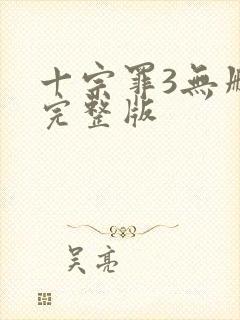 十宗罪3無
完整版
吳亮